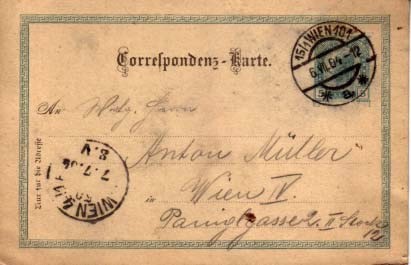 Correspondenz-Karte.
15/1 WIEN 101
6.VII.04.-12
* a *
5 5
An Herrn
Anton Müller
in Wien IV.
Paniglgasse 2. II. Stock
12
Nur für die Adresse
WIEN 4/1
50
7.7.04
8.V